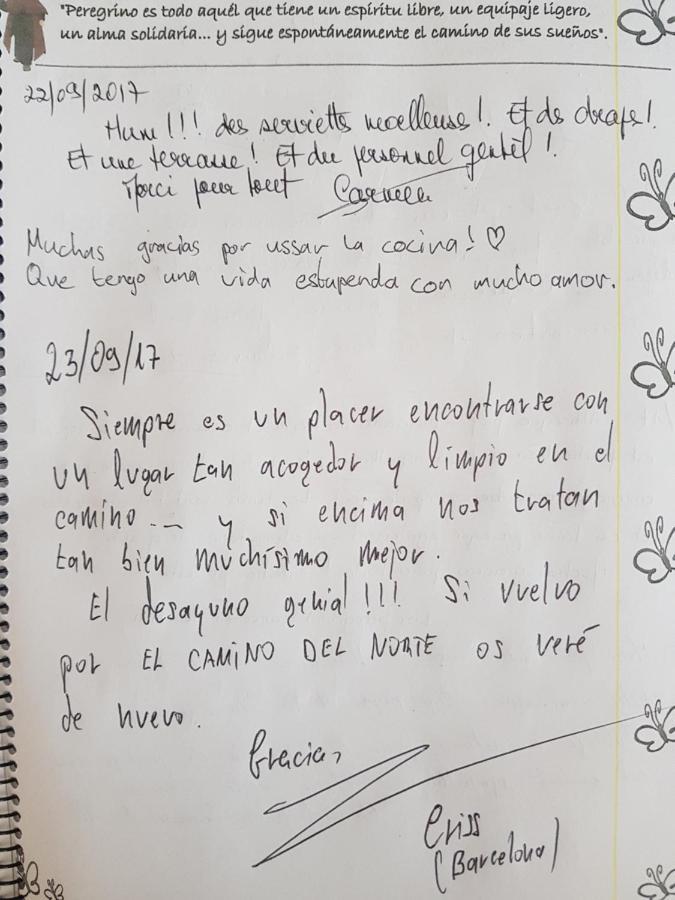 "Peregrino es todo aquél que tiene un espíritu libre, un equipaje ligero,
un alma solidaria... y sigue espontáneamente el camino de sus sueños".
22/09/2017
Hum!!! des serviettes moelleuse!. Et des draps!.
Et une terrasse! Et du personnel gentil!.
Merci pour tout
Muchas gracias por ussar la cocina! ♡
Que tengo una vida estupenda con mucho amor.
23/09/17
Siempre es un placer encontrarse con
un lugar tan acogedor y limpio en el
camino... y si encima nos tratan
tan bien muchísimo mejor.
El desayuno genial!!! Si vuelvo
por EL CAMINO DEL NORTE os veré
de nuevo.
Gracias
Criss
(Barcelona)